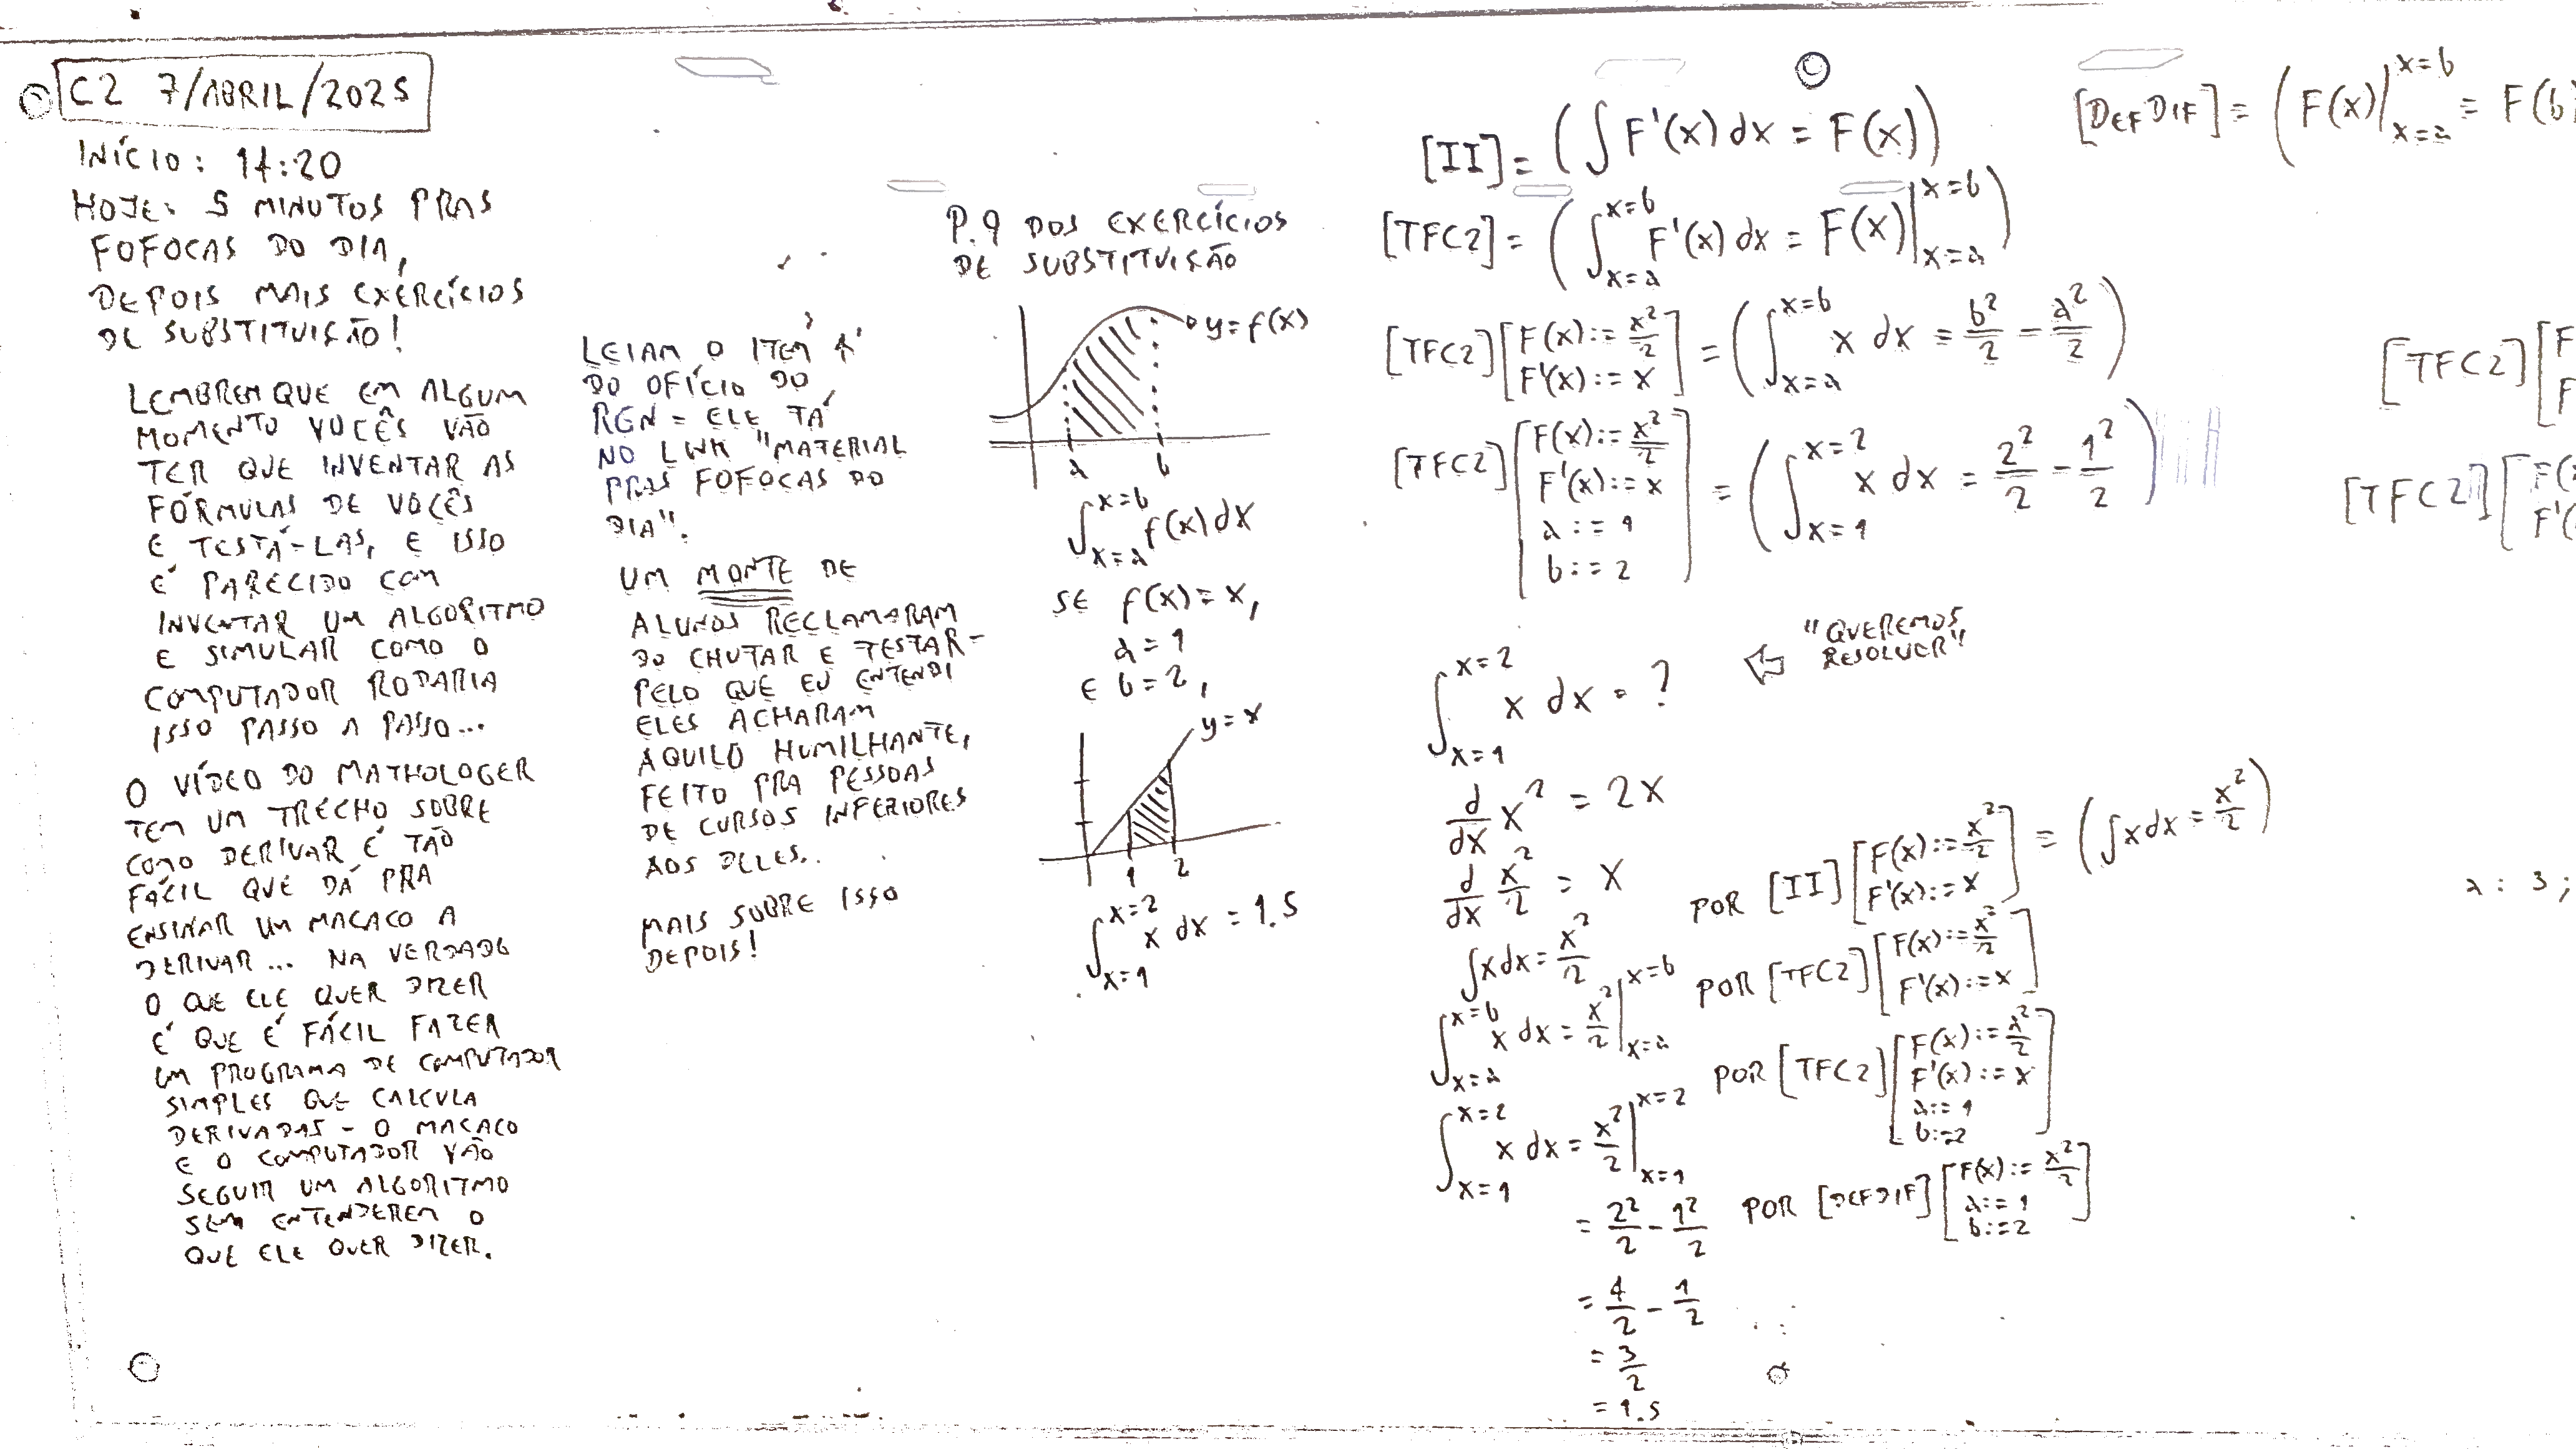 C2 7/ABRIL/2025
INÍCIO: 14:20
HOJE: 5 MINUTOS PRAS
FOFOCAS DO DIA,
DEPOIS MAIS EXERCÍCIOS
DE SUBSTITUIÇÃO!
LEMBREM QUE EM ALGUM
MOMENTO VOCÊS VÃO
TER QUE INVENTAR AS
FÓRMULAS DE VOCÊS
E TESTÁ-LAS, E ISSO
É PARECIDO COM
INVENTAR UM ALGORITMO
E SIMULAR COMO O
COMPUTADOR RODARIA
ISSO PASSO A PASSO...
O VÍDEO DO MATHOLOGER
TEM UM TRECHO SOBRE
COMO DERIVAR É TÃO
FÁCIL QUE DÁ PRA
ENSINAR UM MACACO A
DERIVAR... NA VERDADE
O QUE ELE QUER DIZER
É QUE É FÁCIL FAZER
UM PROGRAMA DE COMPUTADOR
SIMPLES QUE CALCULA
DERIVADAS - O MACACO
E O COMPUTADOR VÃO
SEGUIR UM ALGORITMO
SEM ENTENDEREM O
QUE ELE QUER DIZER.
LEIAM O ITEM
DO OFÍCIO DO
RCN = ELE TÁ
NO LINK "MATERIAL
PRAS FOFOCAS DO
DIA".
UM MONTE DE
ALUNOS RECLAMARAM
DO CHUTAR E TESTAR -
PELO QUE EU ENTENDI
ELES ACHARAM
AQUILO HUMILHANTE,
FEITO PRA PESSOAS
DE CURSOS INFERIORES
AOS DELES..
MAIS SOBRE ISSO
DEPOIS!
P.9 DOS EXERCÍCIOS
DE SUBSTITUIÇÃO
y=f(x)
a b
∫_{x=a}^{x=b} f(x) dx
SE f(x)=x,
a=1
E b=2,
y=x
1 2
∫_{x=1}^{x=2} x dx = 1.5
[II] = (∫ F'(x) dx = F(x))
[TFC2] = (∫_{x=a}^{x=b} F'(x) dx = F(x)|_{x=a}^{x=b})
[TFC2] [F(x):= x²/2 F'(x):= x] = (∫_{x=a}^{x=b} x dx = b²/2 - a²/2)
[TFC2] [F(x):= x²/2 F'(x):= x a:=1 b:=2] = (∫_{x=1}^{x=2} x dx = 2²/2 - 1²/2)
∫_{x=1}^{x=2} x dx = ? ⇐ "QUEREMOS
RESOLVER"
d/dx x² = 2x
d/dx x²/2 = x
∫x dx = x²/2 POR [II] [F(x):= x²/2 F'(x):= x] = (∫x dx = x²/2)
∫_{x=a}^{x=b} x dx = x²/2 |_{x=a}^{x=b} POR [TFC2] [F(x):= x²/2 F'(x):= x]
∫_{x=1}^{x=2} x dx = x²/2 |_{x=1}^{x=2} POR [TFC2] [F(x):= x²/2 F'(x):= x a:=1 b:=2]
= 2²/2 - 1²/2 POR [DEFDIF] [F(x):= x²/2 a:=1 b:=2]
= 4/2 - 1/2
= 3/2
= 1.5
[DEFDIF] = (F(x)|_{x=a}^{x=b} = F(b)
[TFC2] [F
F
[TFC2] [F(
F'(
a : 3 ;